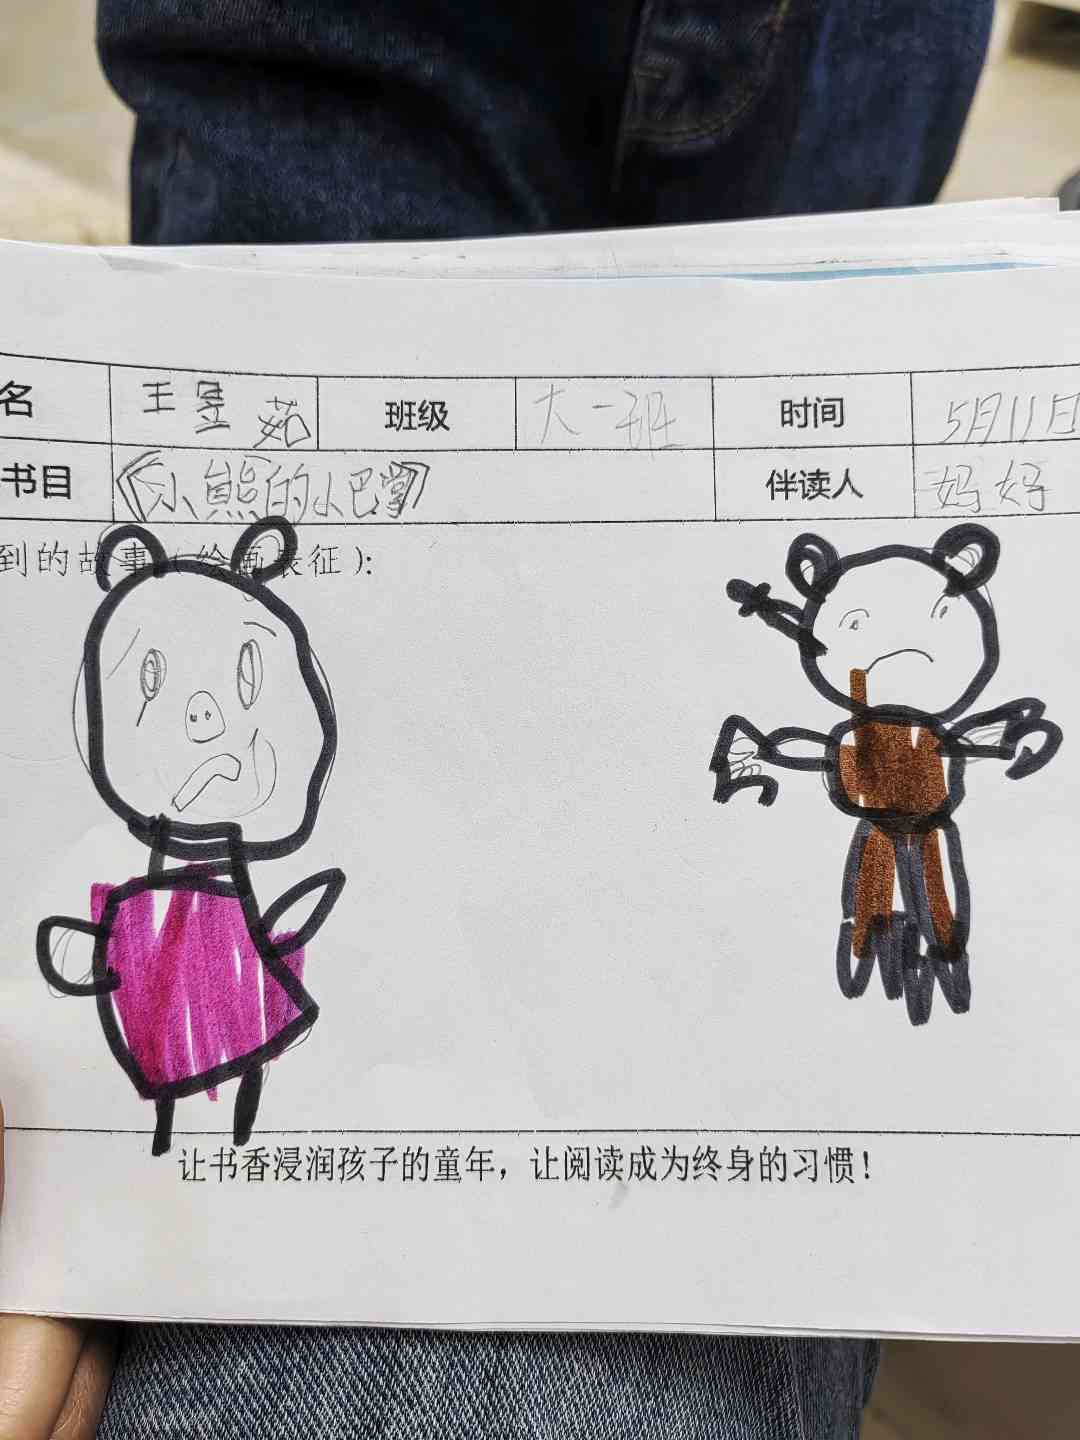 名 王昱茹 班级 大一班 时间 5月11日
书目 《小熊的小巴掌》 伴读人 妈妈
到的故事(绘画表征):
让书香浸润孩子的童年，让阅读成为终身的习惯！